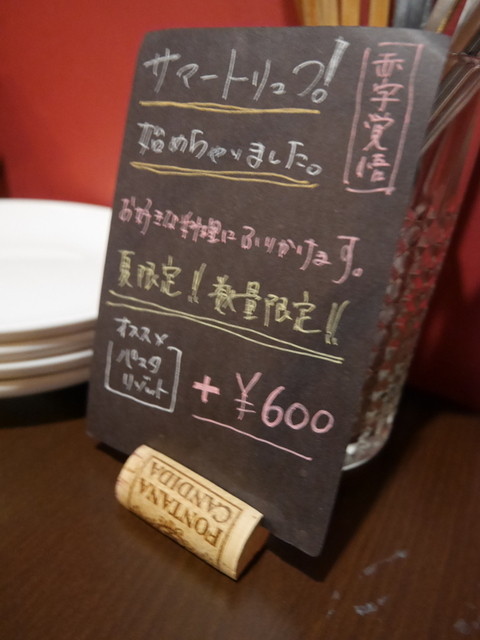 サマートリュフ!
赤字覚悟
始めちゃいました。
お好きな料理にふりかけます。
夏限定!! 数量限定!!
オススメ
パスタ
リゾット
+ ¥600
FONTANA
CANDIDA